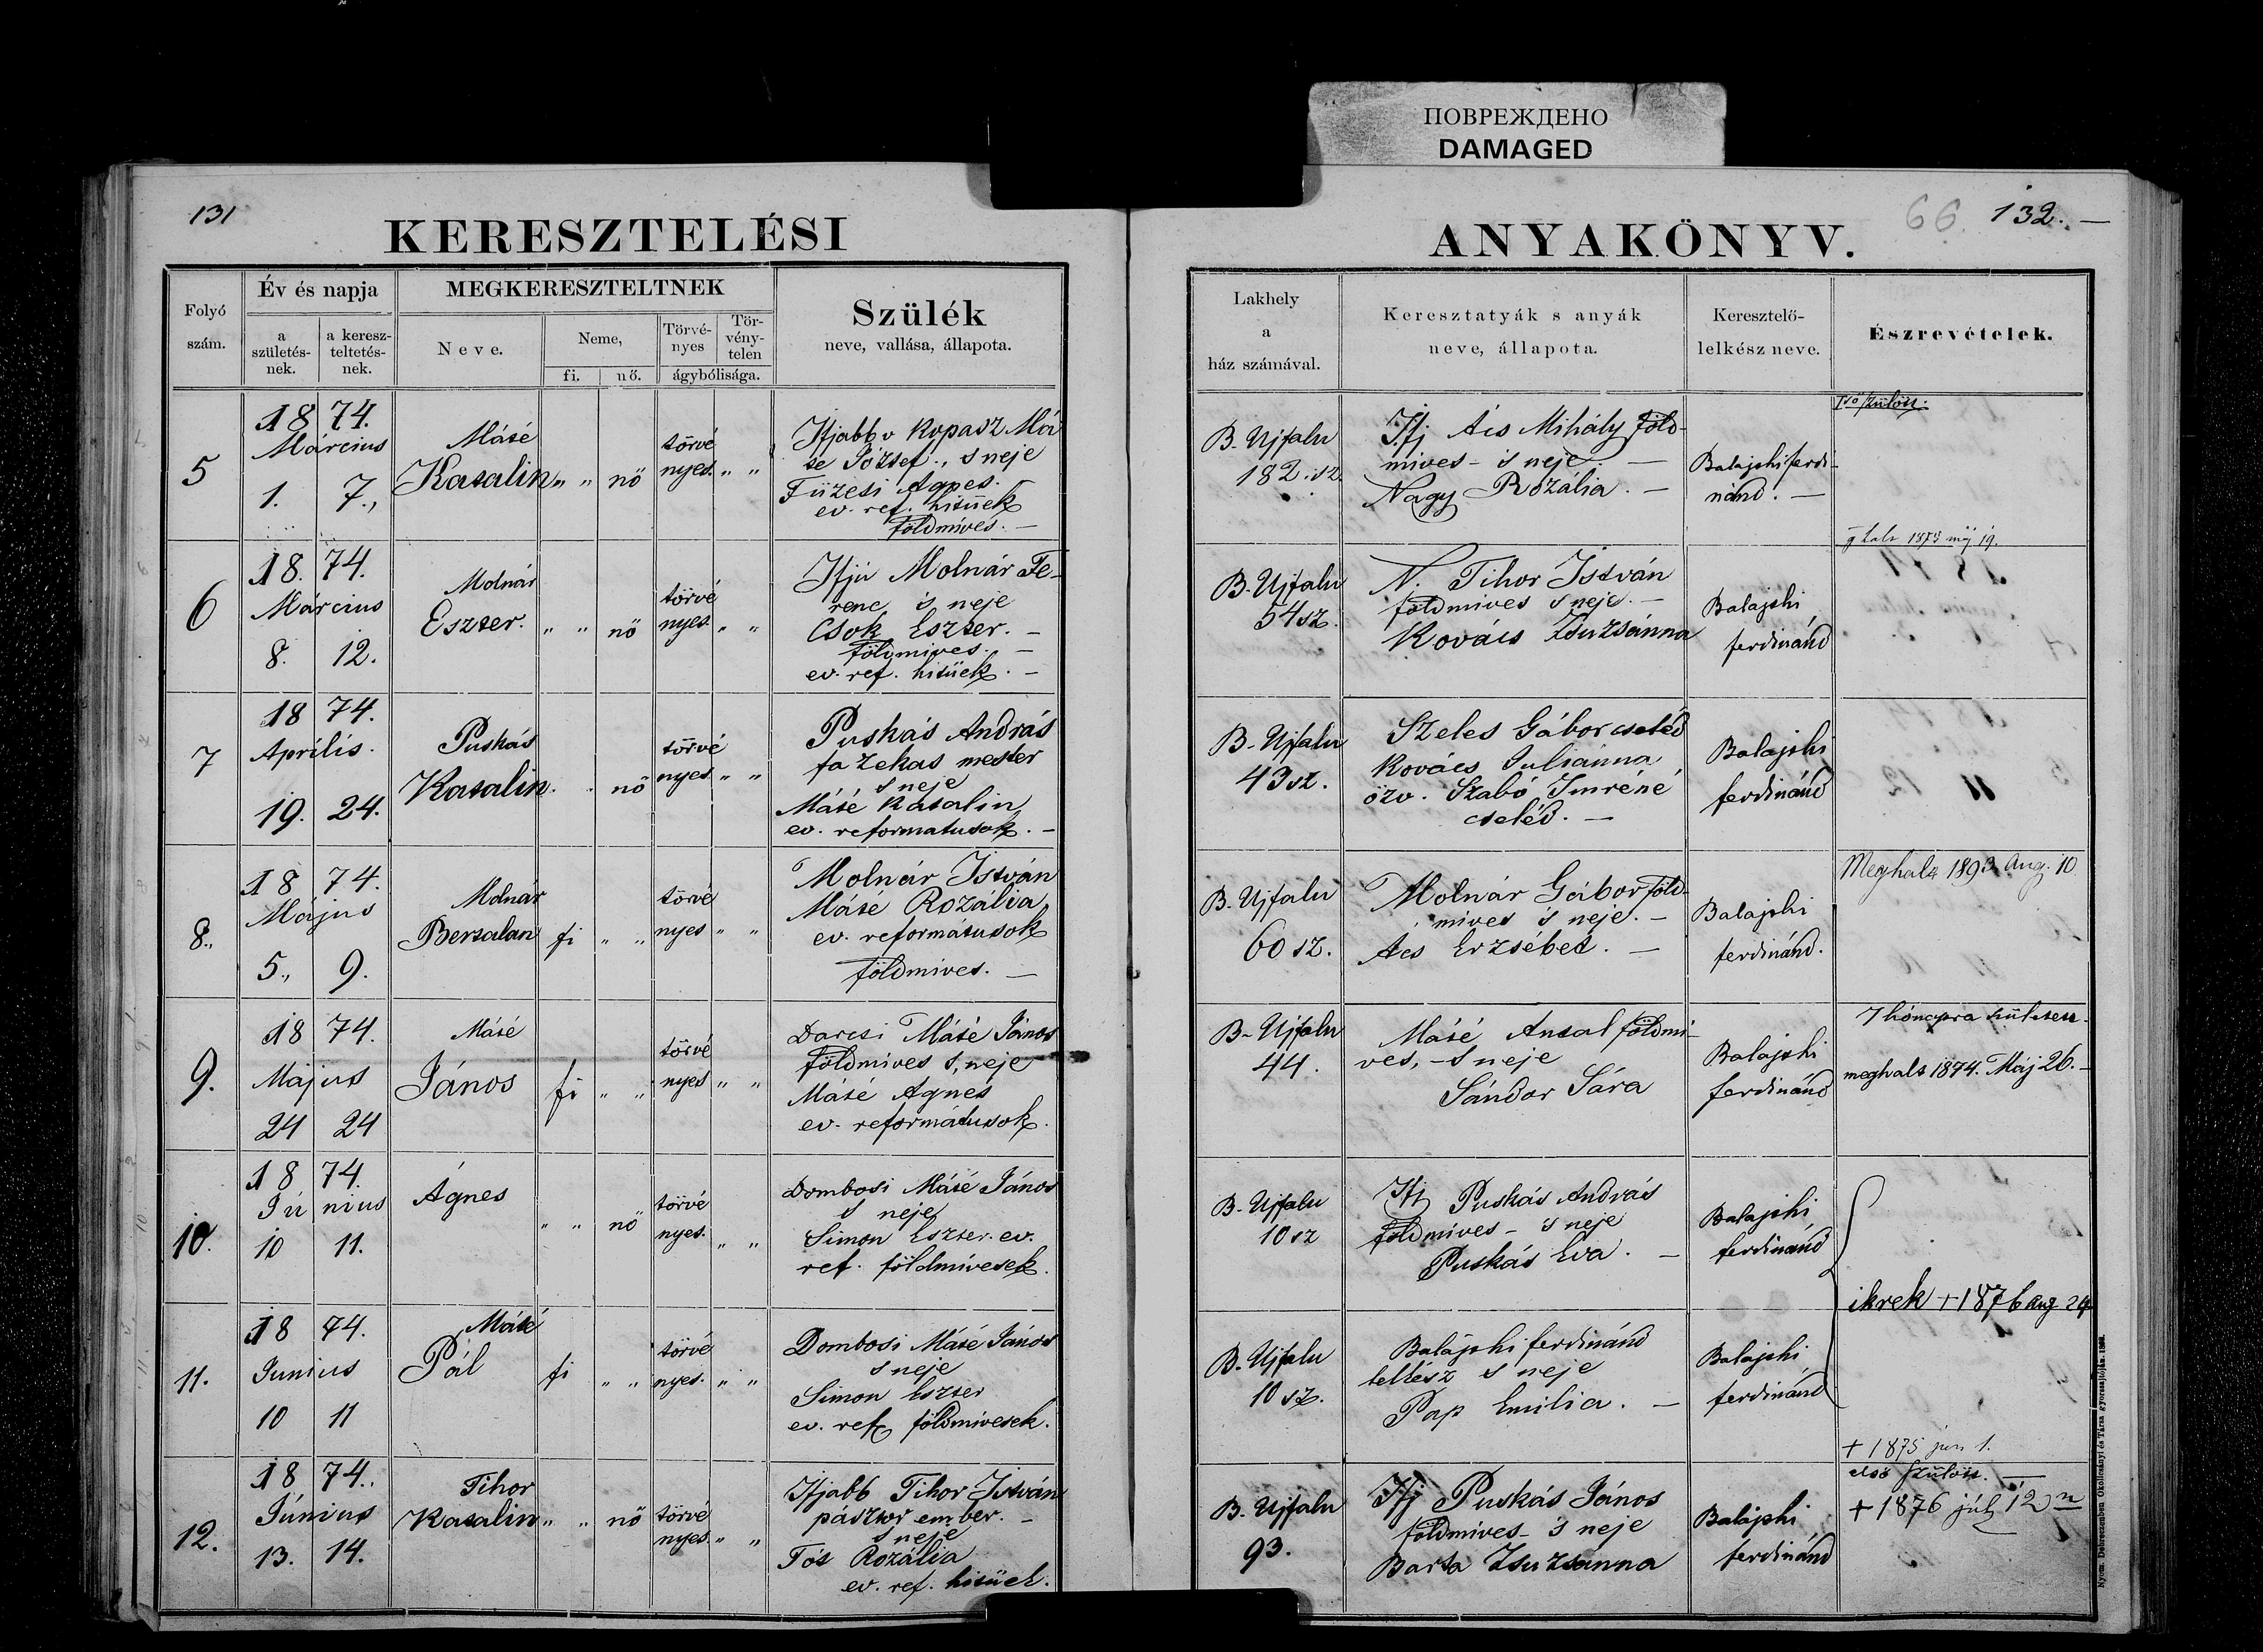 ПОВРЕЖДЕНО
DAMAGED
131
KERESZTELÉSI
Folyó szám.
Év és napja
a születés-nek.
a keresz-teltetés-nek.
MEGKERESZTELTNEK
Neve.
Neme,
fi.
nő.
Törvé-nyes
Tör-vény-telen
ágybólisága.
Szülék
neve, vallása, állapota.
66. 132. —
ANYAKÖNYV.
Lakhely
a
ház számával.
Keresztatyák s anyák
neve, állapota.
Keresztelő-
lelkész neve.
Észrevételek.
5
18 74.
Március
1. 7.,
Máté
Katalin
„ „ nö
törvé
nyes. „ „
Ifjabb v Kopasz Má
té József., s neje
Füzesi Ágnes.
ev. ref. hitüek
földmives. —
B. Ujfalu
182. sz.
Ifj Ács Mihály föld-
mives - s neje. —
Nagy Rozália. —
Balajthi ferdi-
nánd. —
I ső szülött.
6
18. 74.
Március
8. 12.
Molnár
Eszter.
„ „ nö
törvé
nyes. „ „
Ifjú Molnár Fe-
renc s neje
Csok Eszter. —
földmives. —
ev. ref. hitüek. —
B. Ujfalu
54 sz.
N. Tihor István
földmives s neje. —
Kovács Zsuzsánna
Balajthi
ferdinánd
7
18 74.
Április.
19. 24.
Puskás
Katalin.
nö
törvé
nyes. „ „
Puskás András
fazekas mester
s neje
Máté Katalin
ev. reformatusok. —
B. Ujfalu
43 sz.
Szeles Gábor cseléd
Kovács Juliánna
özv. Szabó Imréné
cseléd. —
Balajthi
ferdinánd
8.,
18 74.
Május
5., 9.
Molnár
Bertalan
fi „ „
törvé
nyes „ „
Molnár István
Máte Rozália
ev. reformatusok
földmives. —
B. Ujfalu
60 sz.
Molnár Gábor föld-
mives s neje. —
Acs Erzsébet. —
Balajthi
ferdinánd.
Meghalt 1893 Aug. 10
9.
18 74.
Május
24 24
Máté
János
fi „ „
törvé
nyes „ „
Darcsi Máté János
földmives s, neje
Máté Agnes
ev. reformátusok.
B. Ujfalu
44.
Máté Antal földmi-
ves, - s neje
Sándor Sára
Balajthi
ferdinánd
7 hónapra született.
meghalt 1874. Máj 26. —
10.
18 74.
Június
10 11.
Ágnes
„ „ nö
törvé
nyes. „ „
Dombosi Máté János
s neje
Simon Eszter. ev.
ref. földmivesek.
B. Ujfalu
10 sz
Ifj Puskás András
földmives - s neje
Puskás Eva. —
Balajthi
ferdinánd
ikrek + 1876 aug 24
11.
18 74.
Junius
10 11
Máté
Pál
fi „ „
törvé
nyes. „ „
Dombosi Máté János
s neje
Simon Eszter
ev. ref. földmivesek.
B. Ujfalu
10 sz.
Balajthi ferdinánd
lelkész s neje
Pap Emilia. —
Balajthi
ferdinánd
+ 1875 jun 1.
12.
18 74.,
Június
13. 14.
Tihor
Katalin
„ „ nö
törvé
nyes. „ „
Ifjabb Tihor István
pásztor ember. —
s neje
Tót Rozália
ev. ref. hitüek.
B. Ujfalu
93.
Ifj Puskás János
földmives - s neje
Barta Zsuzsanna
Balajthi
ferdinánd
első szülött. —
+ 1876 júl 12 n